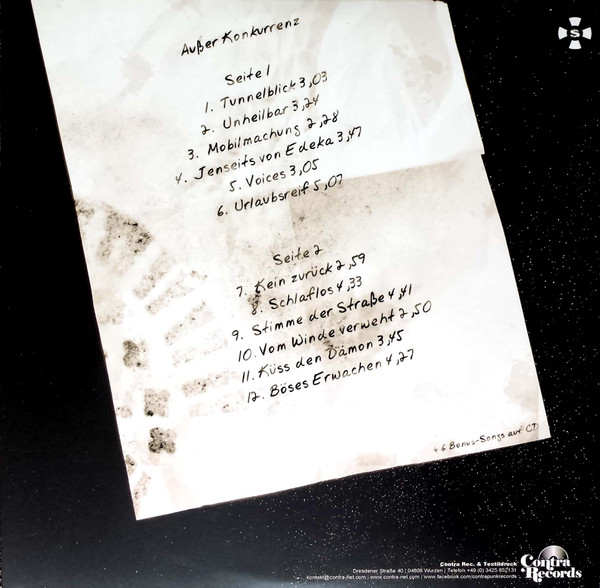 S
Außer Konkurrenz
Seite 1
1. Tunnelblick 3,03
2. Unheilbar 3,24
3. Mobilmachung 2,28
4. Jenseits von Edeka 3,47
5. Voices 3,05
6. Urlaubsreif 5,07
Seite 2
7. Kein zurück 2,59
8. Schlaflos 4,33
9. Stimme der Straße 4,41
10. Vom Winde verweht 2,50
11. Küss den Dämon 3,45
12. Böses Erwachen 4,27
+ 6 Bonus-Songs auf CD
Contra Rec. & Textildruck
Dresdener Straße 40 | 04808 Wurzen | Telefon +49 (0) 3425 852131
kontakt@contra-net.com | www.contra-net.com | www.facebook.com/contrapunkrecords
Contra
Records